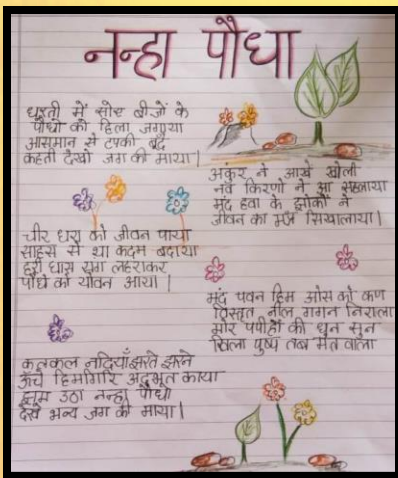 नन्हा पौधा
धरती में सोए बीजों के
पौधों को हिला जगाया
आसमान से टपकी बूंदे
कहती देखो जग की माया।
अंकुर ने आखें खोली
नव किरणों ने आ सहलाया
मंद हवा के झोंकों ने
जीवन का मंत्र सिखालाया।
चीर धरा को जीवन पाया
साहस से था कदम बढ़ाया
हरी घास संग लहराकर
पौधे को यौवन आया।
मंद पवन हिम ओस को कण
विस्तृत नील गगन निराला
मोर पपीहों की धुन सुन
खिला पुष्प तब मत वाला
कलकल नदियाँ झरते झरने
ऊँचे हिमगिरि अदभूत काया
झूम उठा नन्हा पौधा
देख भव्य जग की माया।